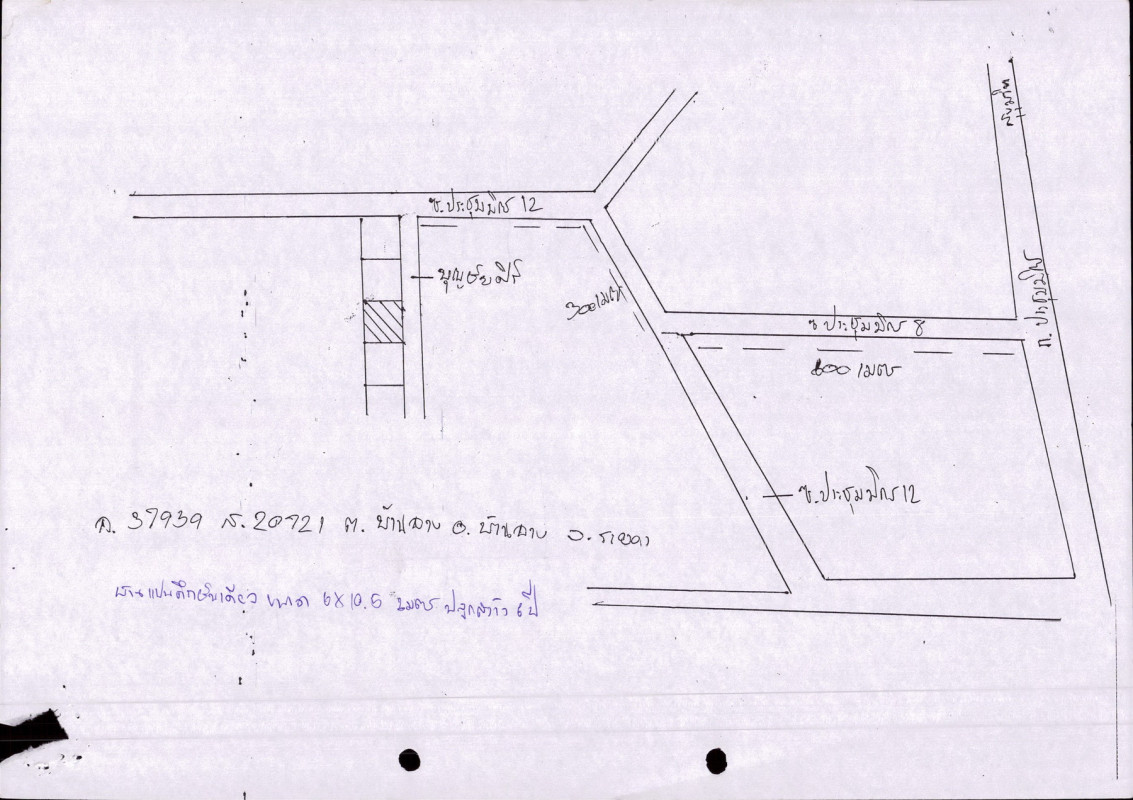 สุขุมวิท
ซ.ประชุมมิตร 12
บุญชัยคีรี
300 เมตร
ถ. ประชุมมิตร
ซ ประชุมมิตร 8
800 เมตร
ซ.ประชุมมิตร 12
ฉ. 37939 ส. 20721 ต. บ้านฉาง อ. บ้านฉาง จ. ระยอง
บ้านแฝดตึกชั้นเดียว ขนาด 6X10.5 เมตร ปลูกแล้ว 6 ปี